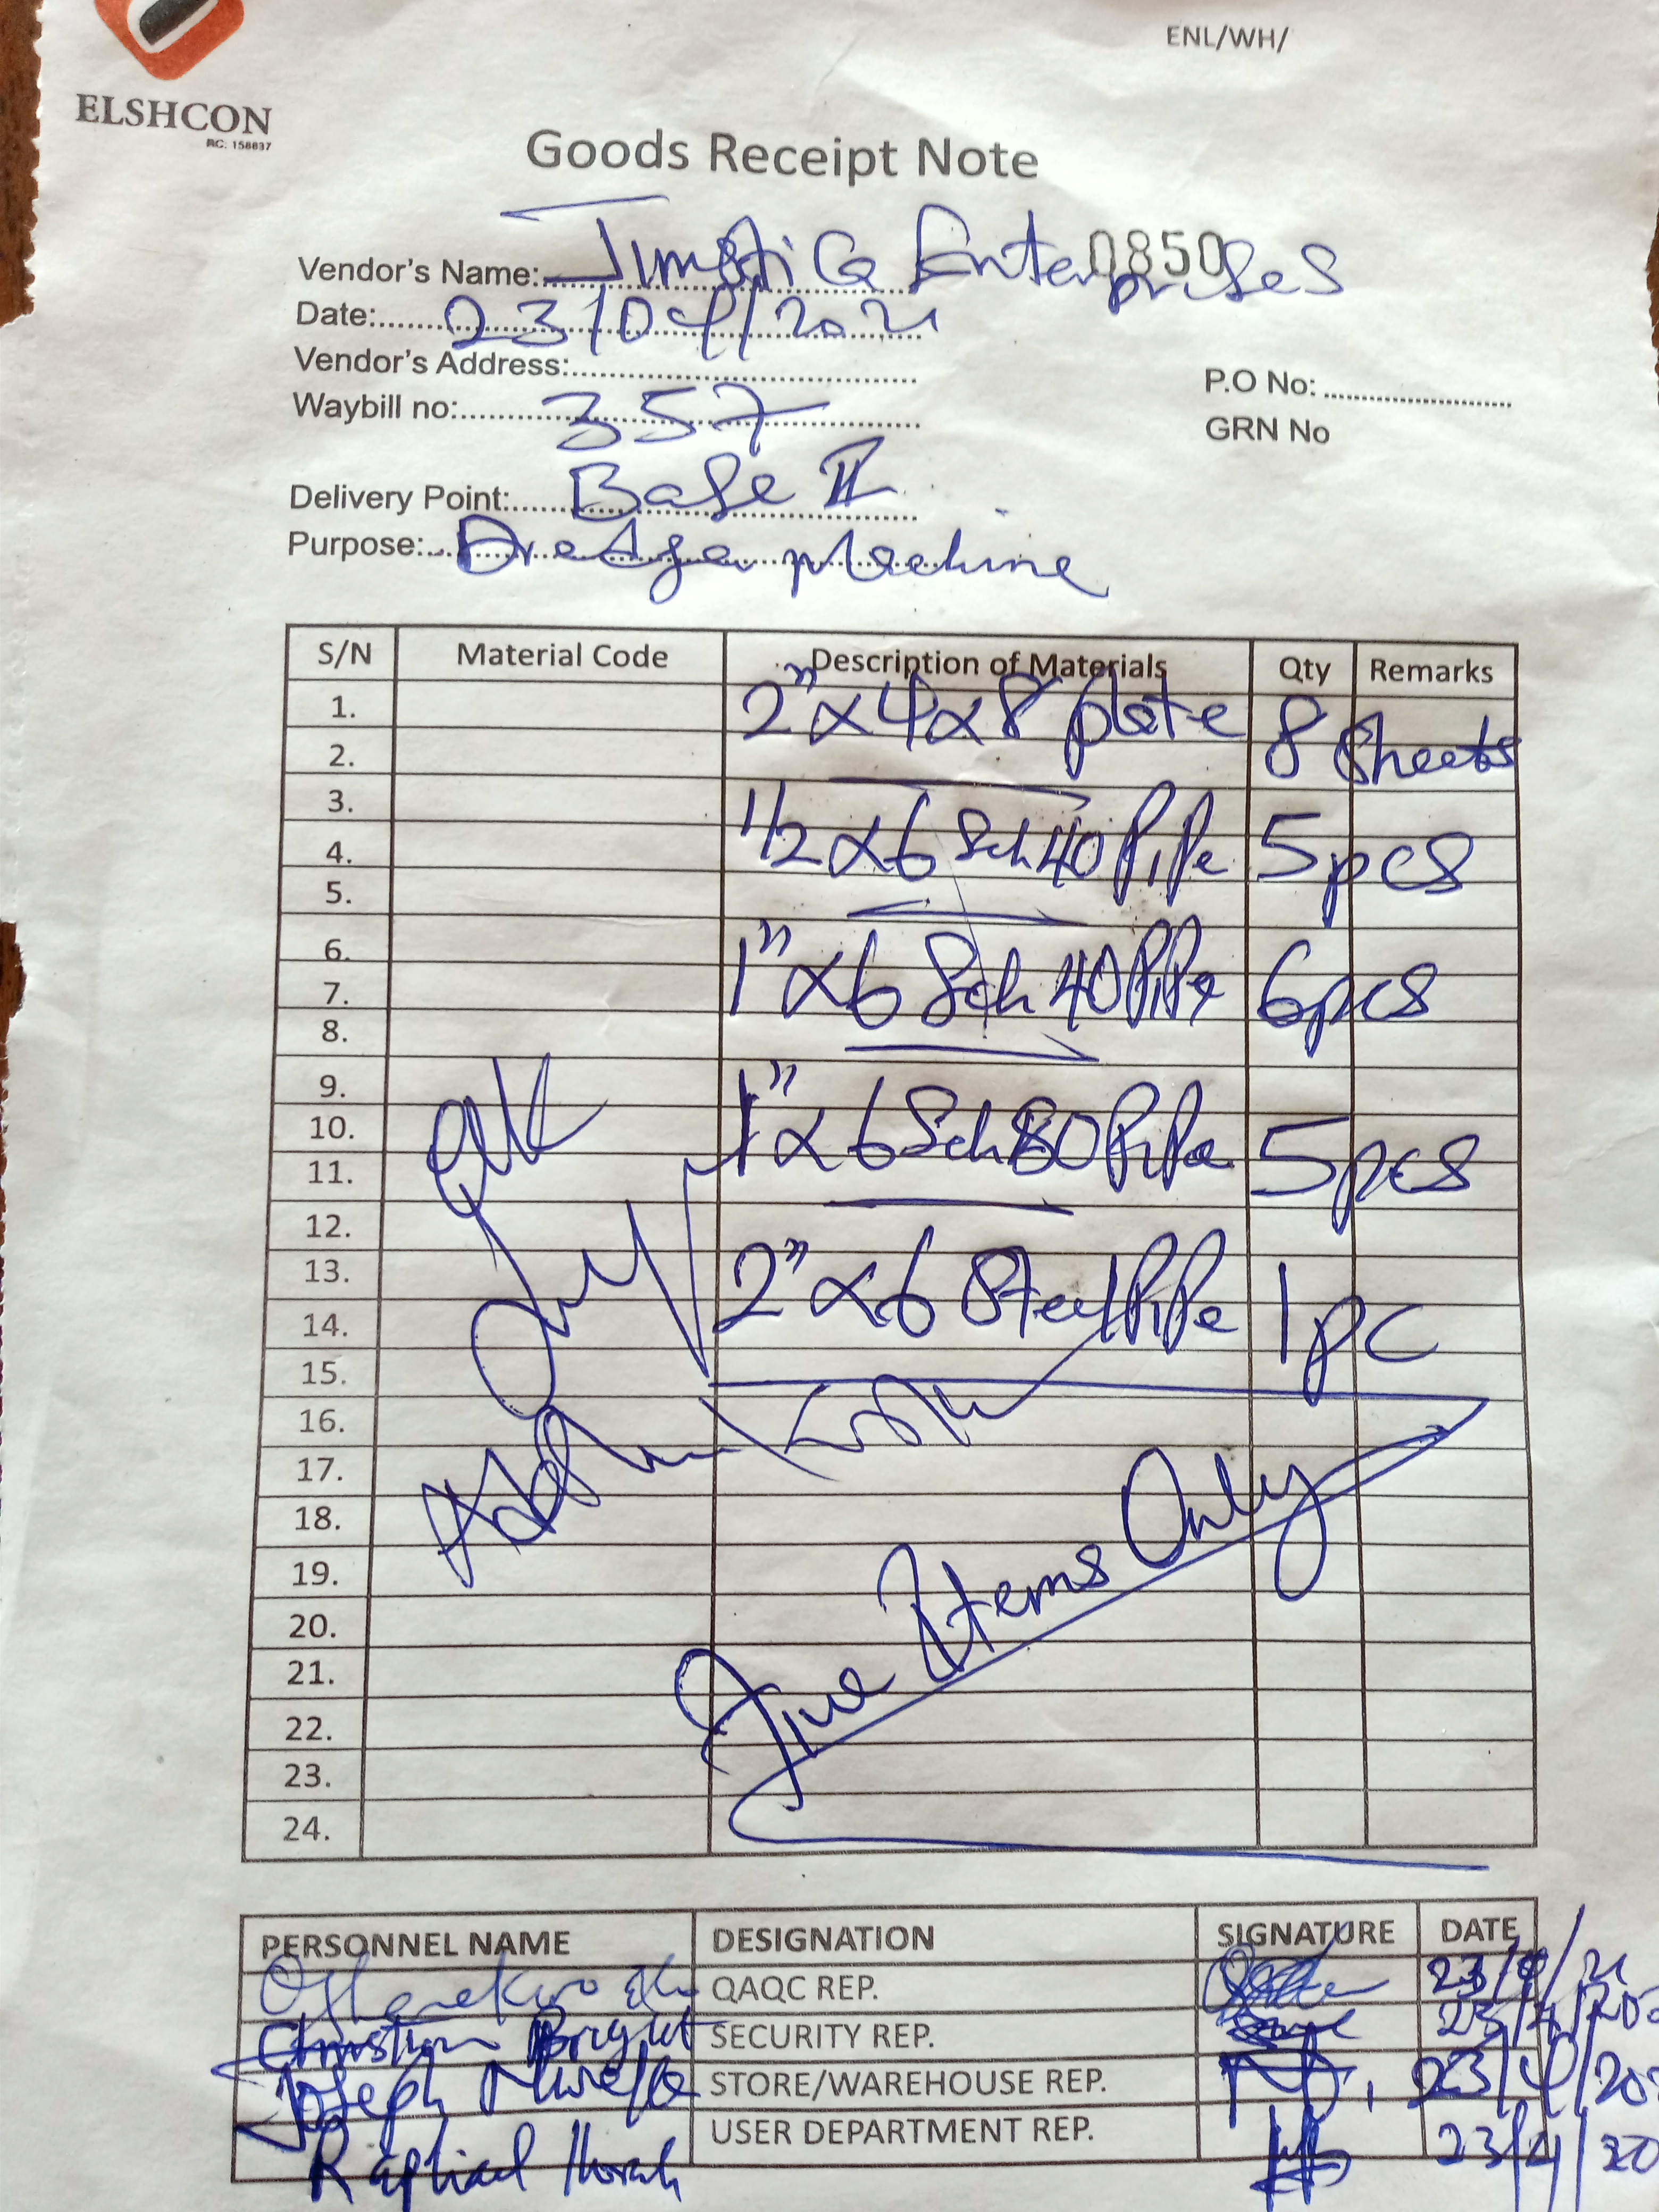 ENL/WH/
ELSHCON
RC: 158837
Goods Receipt Note
0850
Vendor's Name: Jimstic Enterprises
Date: 23/04/2021
Vendor's Address:
P.O No:
Waybill no: 357
GRN No
Delivery Point: Base II
Purpose: Dredger Machine
S/N Material Code Description of Materials Qty Remarks
1. 2" x 4 x 8 plate 8 Sheets
2.
3.
4. 1/2 x 6 Sch 40 Pipe 5 pcs
5.
6.
7. 1" x 6 Sch 40 Pipe 6 pcs
8.
9.
10. 1" x 6 Sch 80 Pipe 5 pcs
11.
12.
13. 2" x 6 Steel Pipe 1 pc
14.
15.
16.
17.
18.
19.
20.
21.
22.
23.
24.
Five Items Only
PERSONNEL NAME DESIGNATION SIGNATURE DATE
QAQC REP. 23/4/21
Christian Bright SECURITY REP. 23/4/202
Joseph SECURITY STORE/WAREHOUSE REP. 23/4/202
Raphael USER DEPARTMENT REP. 23/4/20